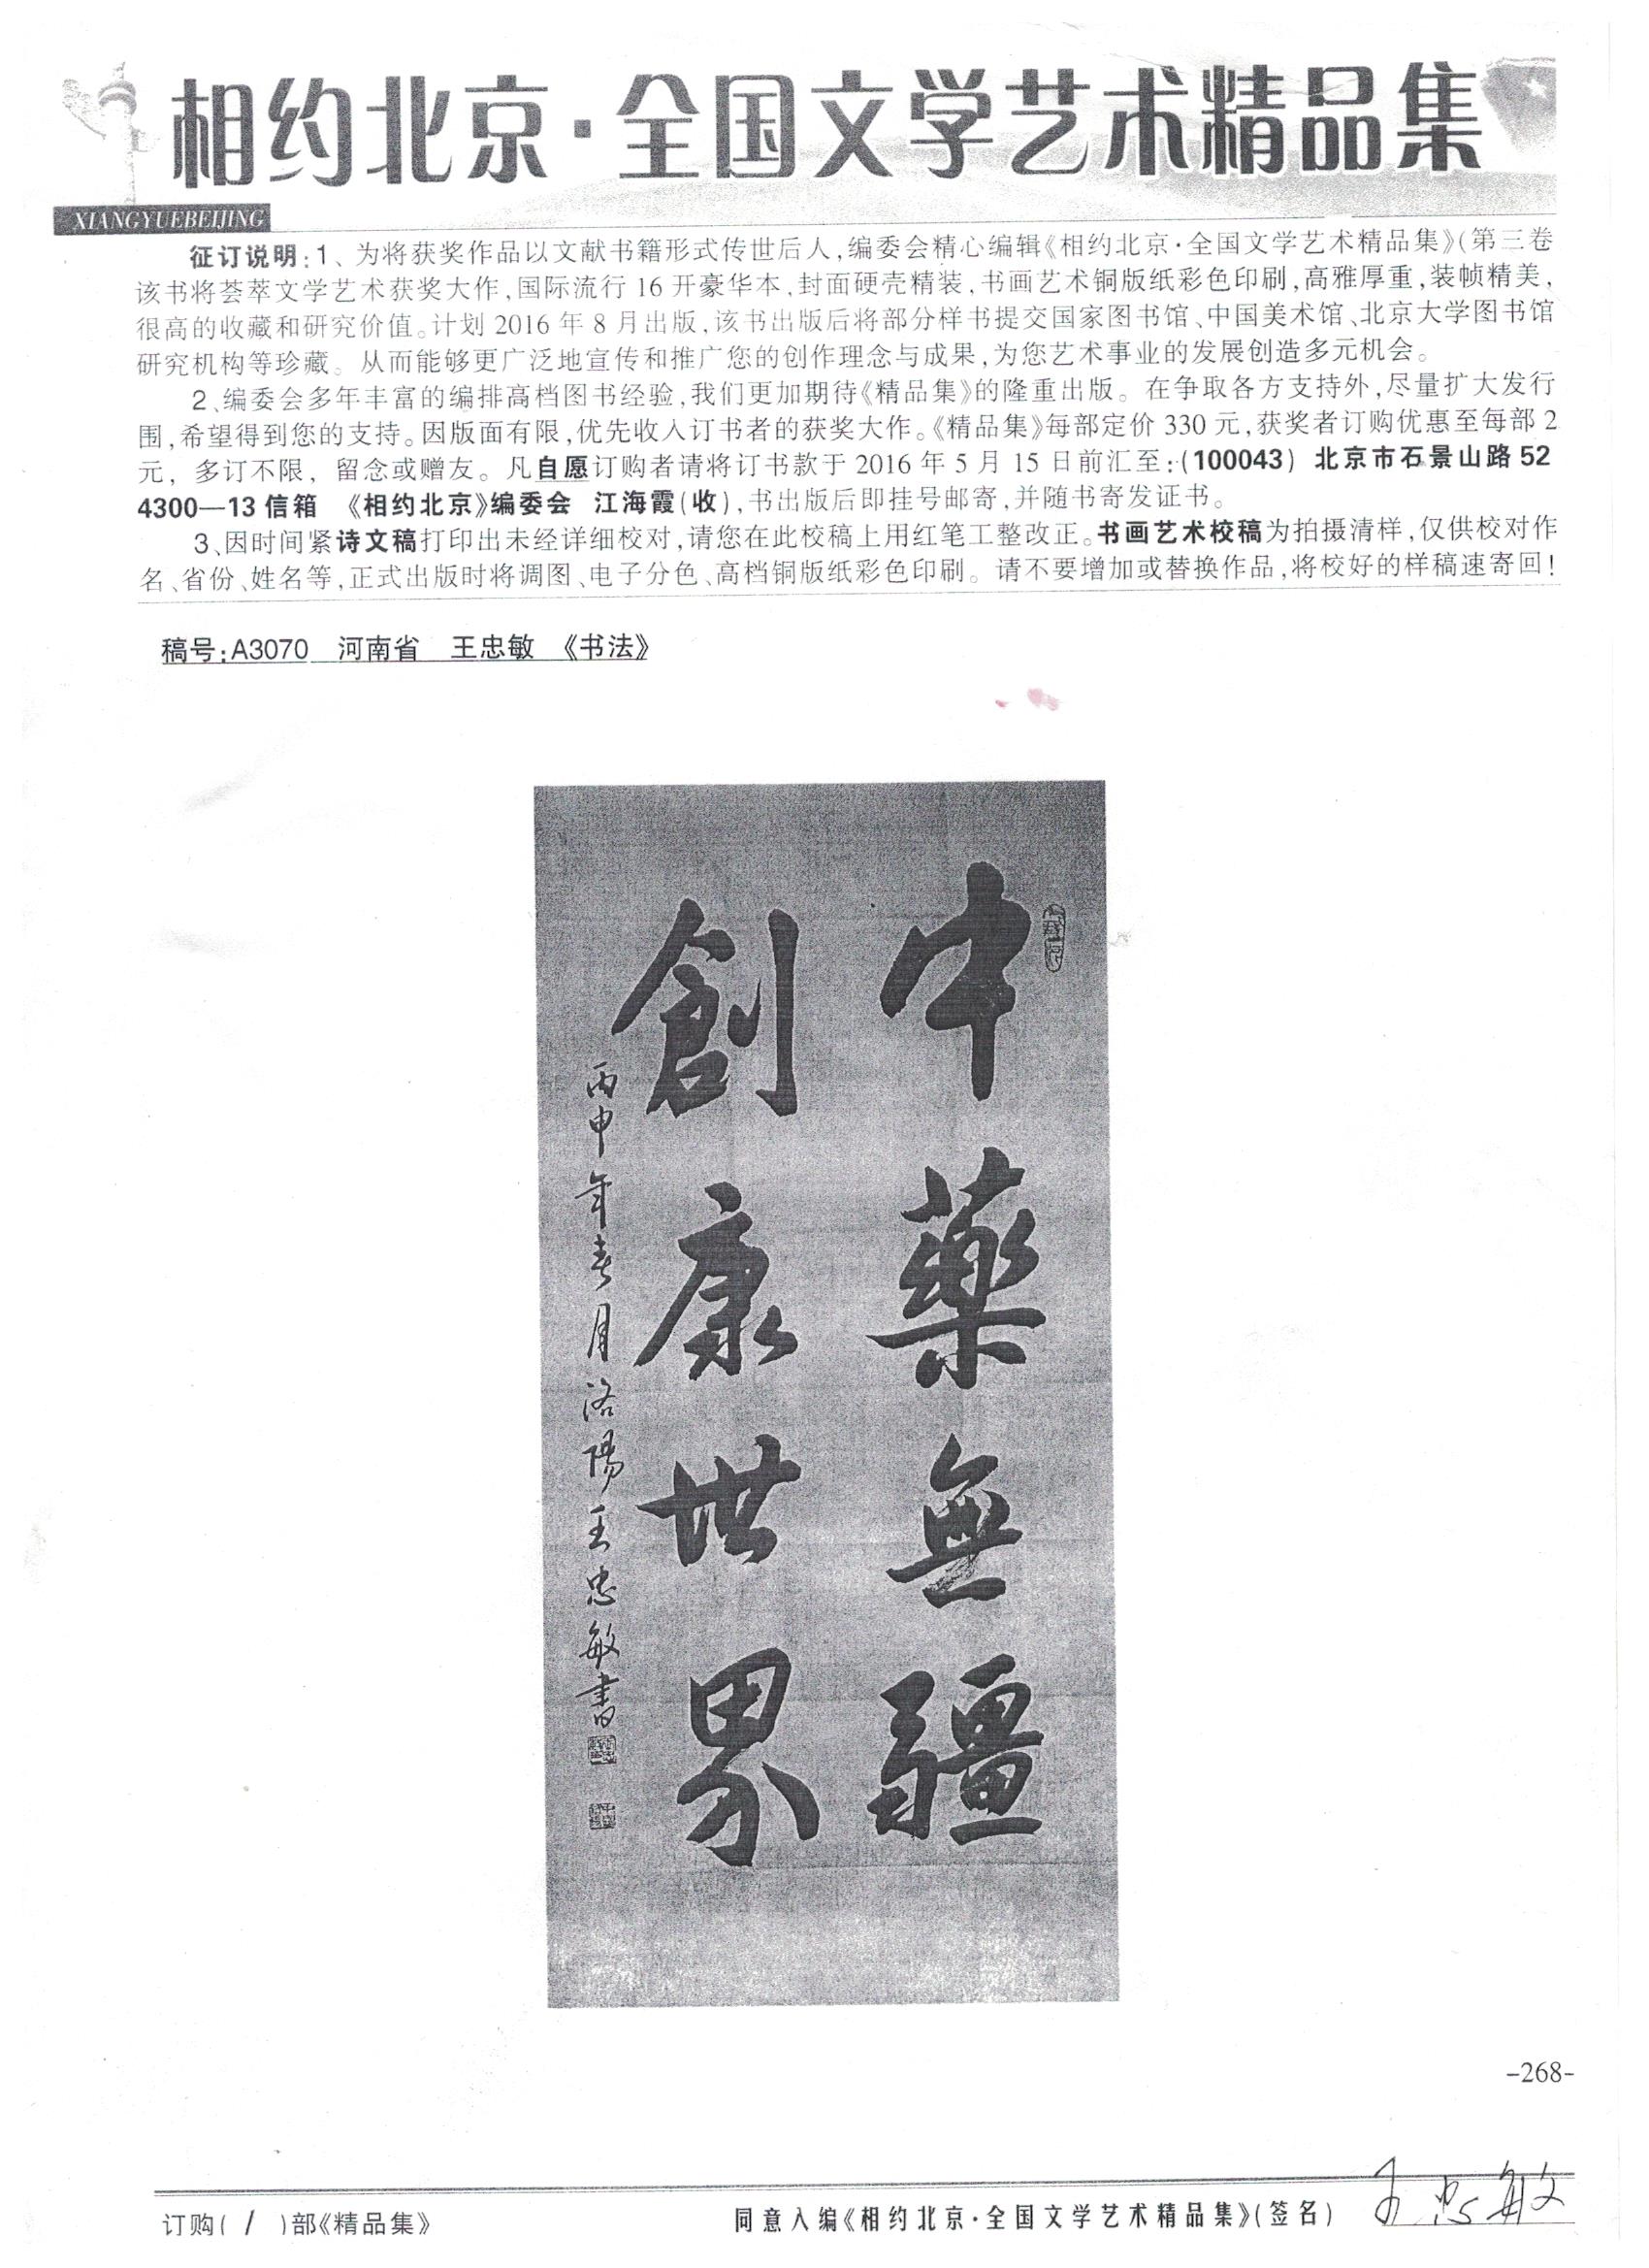 相约北京·全国文学艺术精品集
XIANGYUEBEIJING
征订说明:1、为将获奖作品以文献书籍形式传世后人,编委会精心编辑《相约北京·全国文学艺术精品集》(第三卷
该书将荟萃文学艺术获奖大作,国际流行 16 开豪华本,封面硬壳精装,书画艺术铜版纸彩色印刷,高雅厚重,装帧精美,
很高的收藏和研究价值。计划 2016 年 8 月出版,该书出版后将部分样书提交国家图书馆、中国美术馆、北京大学图书馆
研究机构等珍藏。从而能够更广泛地宣传和推广您的创作理念与成果,为您艺术事业的发展创造多元机会。
2、编委会多年丰富的编排高档图书经验,我们更加期待《精品集》的隆重出版。在争取各方支持外,尽量扩大发行
围,希望得到您的支持。因版面有限,优先收入订书者的获奖大作。《精品集》每部定价 330 元,获奖者订购优惠至每部 2
元，多订不限，留念或赠友。凡自愿订购者请将订书款于 2016 年 5 月 15 日前汇至:(100043) 北京市石景山路 52
4300—13 信箱 《相约北京》编委会 江海霞(收),书出版后即挂号邮寄,并随书寄发证书。
3、因时间紧诗文稿打印出未经详细校对,请您在此校稿上用红笔工整改正。书画艺术校稿为拍摄清样,仅供校对作
名、省份、姓名等,正式出版时将调图、电子分色、高档铜版纸彩色印刷。请不要增加或替换作品,将校好的样稿速寄回!
稿号:A3070 河南省 王忠敏 《书法》
中藥無疆
創康世界
丙申年春月洛陽王忠敏書
-268-
订购( / )部《精品集》
同意入编《相约北京·全国文学艺术精品集》(签名) 王忠敏